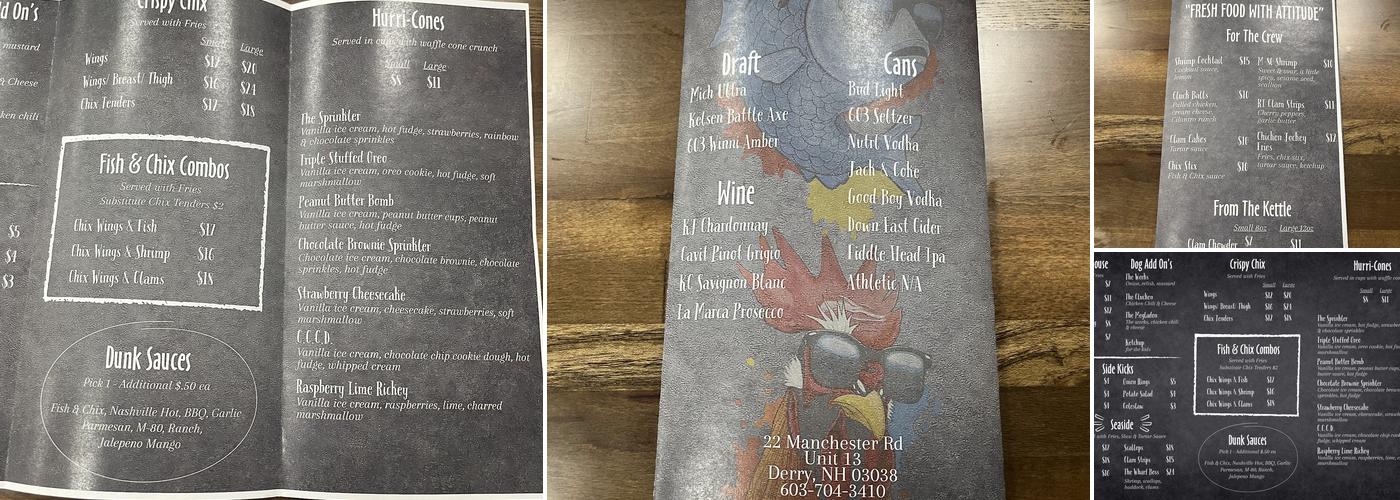 dd On's
mustard
& Cheese
ken chili
$5
$4
$3
Crispy Chix
Served with Fries
Small Large
Wings $12 $20
Wings/ Breast/ Thigh $16 $24
Chix Tenders $12 $18
Fish & Chix Combos
Served with Fries
Substitute Chix Tenders $2
Chix Wings & Fish $17
Chix Wings & Shrimp $16
Chix Wings & Clams $18
Dunk Sauces
Pick 1 - Additional $.50 ea
Fish & Chix, Nashville Hot, BBQ, Garlic
Parmesan, M-80, Ranch,
Jalepeno Mango
Hurri-Cones
Served in cups with waffle cone crunch
Small Large
$8 $11
The Sprinkler
Vanilla ice cream, hot fudge, strawberries, rainbow
& chocolate sprinkles
Triple Stuffed Oreo
Vanilla ice cream, oreo cookie, hot fudge, soft
marshmallow
Peanut Butter Bomb
Vanilla ice cream, peanut butter cups, peanut
butter sauce, hot fudge
Chocolate Brownie Sprinkler
Chocolate ice cream, chocolate brownie, chocolate
sprinkles, hot fudge
Strawberry Cheesecake
Vanilla ice cream, cheesecake, strawberries, soft
marshmallow
C.C.C.D.
Vanilla ice cream, chocolate chip cookie dough, hot
fudge, whipped cream
Raspberry Lime Rickey
Vanilla ice cream, raspberries, lime, charred
marshmallow
Draft
Mich Ultra
Kelsen Battle Axe
603 Winni Amber
Wine
KJ Chardonnay
Cavit Pinot Grigio
KC Savignon Blanc
La Marca Prosecco
Cans
Bud Light
603 Seltzer
Nutrl Vodha
Jack & Coke
Good Boy Vodha
Down East Cider
Fiddle Head Ipa
Athletic N/A
22 Manchester Rd
Unit 13
Derry, NH 03038
603-704-3410
"FRESH FOOD WITH ATTITUDE"
For The Crew
Shrimp Cocktail $15
Cocktail sauce,
lemon
Cluck Balls $10
Pulled chicken,
cream cheese,
cilantro ranch
Clam Cakes $10
Tartar sauce
Chix Stix $10
Fish & Chix sauce
M-80 Shrimp $10
Sweet & sour, a little
spicy, sesame seed,
scallion
RI Clam Strips $11
Cherry peppers,
garlic butter
Chicken Jockey $12
Fries
Fries, chix stix,
tartar sauce, ketchup
From The Kettle
Small 8oz Large 12oz
Clam Chowder $7 $11
ouse
Dog Add On's
The Works
Onion, relish, mustard
The Clucken
Chicken Chili & Cheese
The Megladon
The works, chicken chili
& cheese
Ketchup
for the kids
Side Kicks
Onion Rings $5
Potato Salad $4
Coleslaw $3
Seaside
with Fries, Slaw & Tartar Sauce
Scallops $18
Clam Strips $15
The Wharf Boss $24
Shrimp, scallops,
haddock, clams
Crispy Chix
Served with Fries
Small Large
Wings $12 $20
Wings/ Breast/ Thigh $16 $24
Chix Tenders $12 $18
Fish & Chix Combos
Served with Fries
Substitute Chix Tenders $2
Chix Wings & Fish $17
Chix Wings & Shrimp $16
Chix Wings & Clams $18
Dunk Sauces
Pick 1 - Additional $.50 ea
Fish & Chix, Nashville Hot, BBQ, Garlic
Parmesan, M-80, Ranch,
Jalepeno Mango
Hurri-Cones
Served in cups with waffle co
Small Large
$8 $11
The Sprinkler
Vanilla ice cream, hot fudge, strawber
& chocolate sprinkles
Triple Stuffed Oreo
Vanilla ice cream, oreo cookie, hot fud
marshmallow
Peanut Butter Bomb
Vanilla ice cream, peanut butter cups,
butter sauce, hot fudge
Chocolate Brownie Sprinkler
Chocolate ice cream, chocolate brownie,
sprinkles, hot fudge
Strawberry Cheesecake
Vanilla ice cream, cheesecake, strawb
marshmallow
C.C.C.D.
Vanilla ice cream, chocolate chip cook
fudge, whipped cream
Raspberry Lime Rickey
Vanilla ice cream, raspberries, lime, c
marshmallow